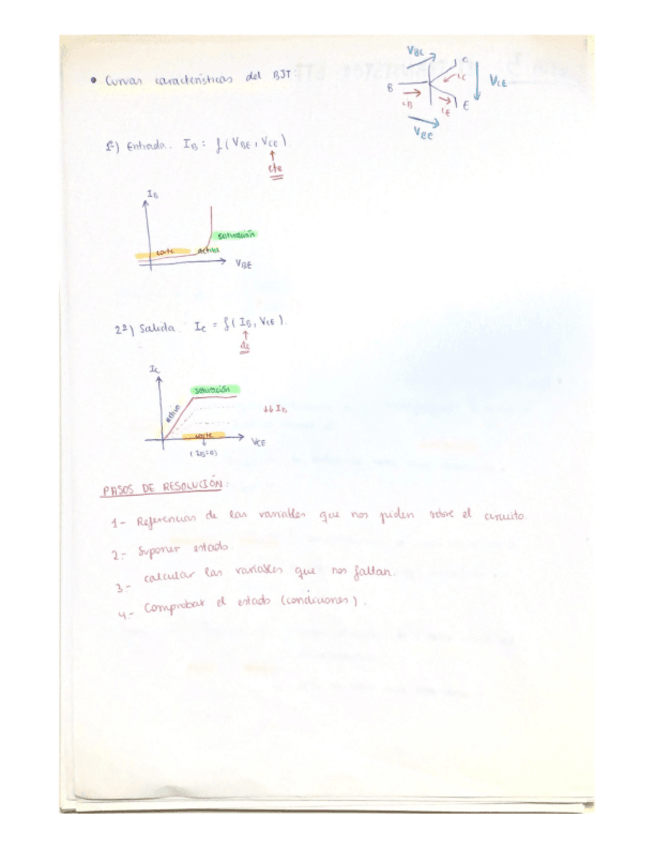 • Curvas características del BJT:
VBC
C
iC
VCE
B
iB
iE
E
1º) Entrada. IB = f(VBE, VCE).
cte
IB
saturación
corte
activa
VBE
2º) Salida. IC = f(IB, VCE).
IC
saturación
activa
↓↓ IB
corte
VCE
(IB=0)
PASOS DE RESOLUCIÓN:
1- Referencias de las variables que nos piden sobre el circuito.
2- Suponer estado.
3.- calcular las variables que nos faltan.
4.- Comprobar el estado (condiciones).